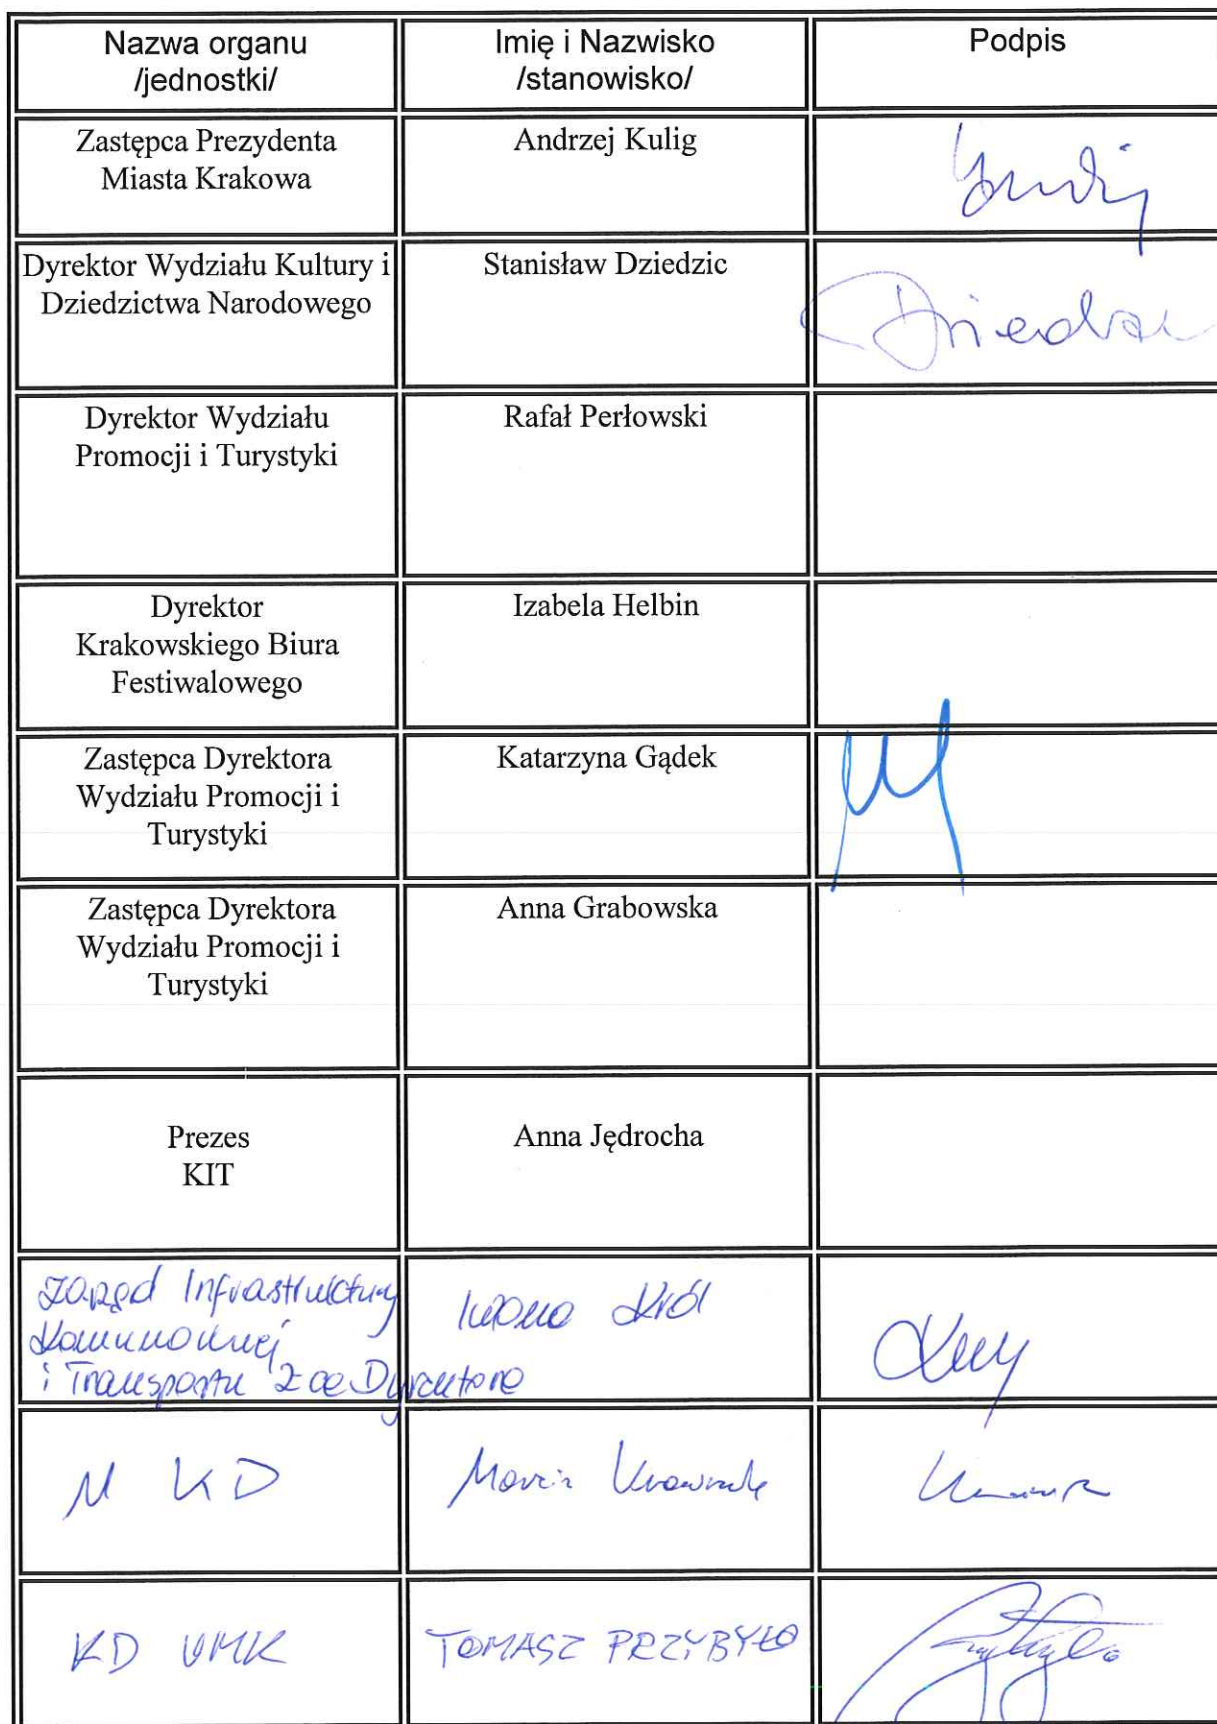 Nazwa organu
/jednostki/
Imię i Nazwisko
/stanowisko/
Podpis
Zastępca Prezydenta
Miasta Krakowa
Andrzej Kulig
Dyrektor Wydziału Kultury i
Dziedzictwa Narodowego
Stanisław Dziedzic
Dyrektor Wydziału
Promocji i Turystyki
Rafał Perłowski
Dyrektor
Krakowskiego Biura
Festiwalowego
Izabela Helbin
Zastępca Dyrektora
Wydziału Promocji i
Turystyki
Katarzyna Gądek
Zastępca Dyrektora
Wydziału Promocji i
Turystyki
Anna Grabowska
Prezes
KIT
Anna Jędrocha
Zarząd Infrastruktury
Komunalnej
i Transportu Z-ca Dyrektora
Iwona Król
M KD
Marcin
KD UMK
TOMASZ PRZYBYŁO